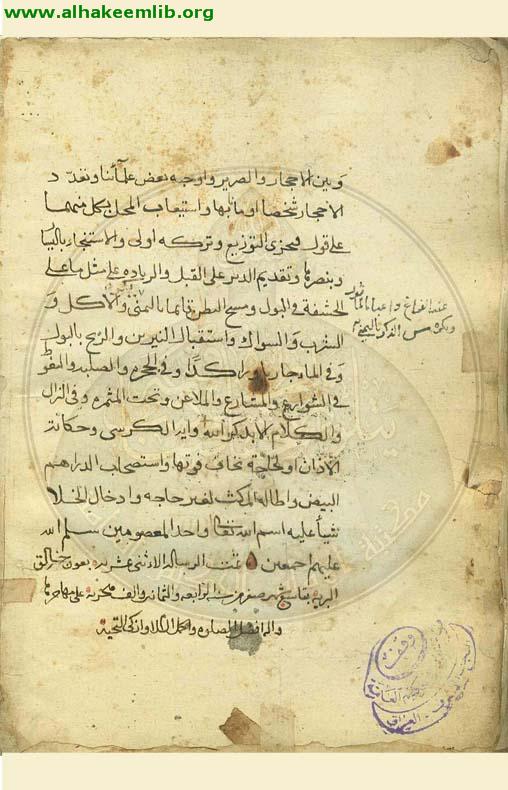 www.alhakeemlib.org
وبين الاحجار والصرير واوجبه بعض علمائنا وتعدد
الاحجار شخصا او ما بها واستيعاب المحل بكل منهما
على قول فيجزى التوزيع وتركه اولى والاستنجاء باليسار
وبنصرها وتقديم الدبر على القبل والزيادة على مثل ما على
الحشفة في البول ومسح البطن قائما باليمنى والاكل و
الشرب والسواك واستقبال النيرين والريح بالبول
وفي الماء جاريا وراكدا وفي الجحرة والصلبة والتغوط
في الشوارع والمشارع والملاعن وتحت المثمرة وفي النزال
والكلام الا بذكر الله واية الكرسى وحكاية
الاذان او لحاجة يخاف فوتها واستصحاب الدراهم
البيض واطالة المكث لغير حاجة وادخال الخلا
شيأ عليه اسم الله تعالى واحد المعصومين سلم الله
عليهم اجمعين تمت الرسالة الاثنى عشرية بعون خالق
البرية تاسع شهر صفر من الرابعة والثمانه والف هجرية على مهاجرها
والها افضل الصلوة واكمل التحية
عند الفراغ داعيا بالماثور
ويكره مس الذكر باليمين
وقف
مكتبة
العامة
العراق